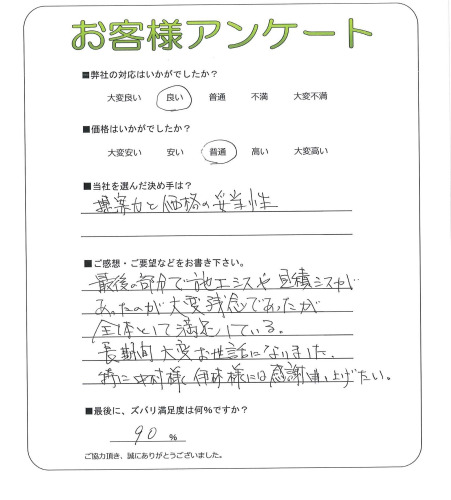 お客様アンケート
■弊社の対応はいかがでしたか？
大変良い 良い 普通 不満 大変不満
■価格はいかがでしたか？
大変安い 安い 普通 高い 大変高い
■当社を選んだ決め手は？
提案力と価格の妥当性
■ご感想・ご要望などをお書き下さい。
最後の部分で施工ミスや見積ミスが
あったのが大変残念であったが
全体として満足している。
長期間大変お世話になりました。
特に中村様、伊藤様には感謝申し上げたい。
■最後に、ズバリ満足度は何%ですか？
90 %
ご協力頂き、誠にありがとうございました。